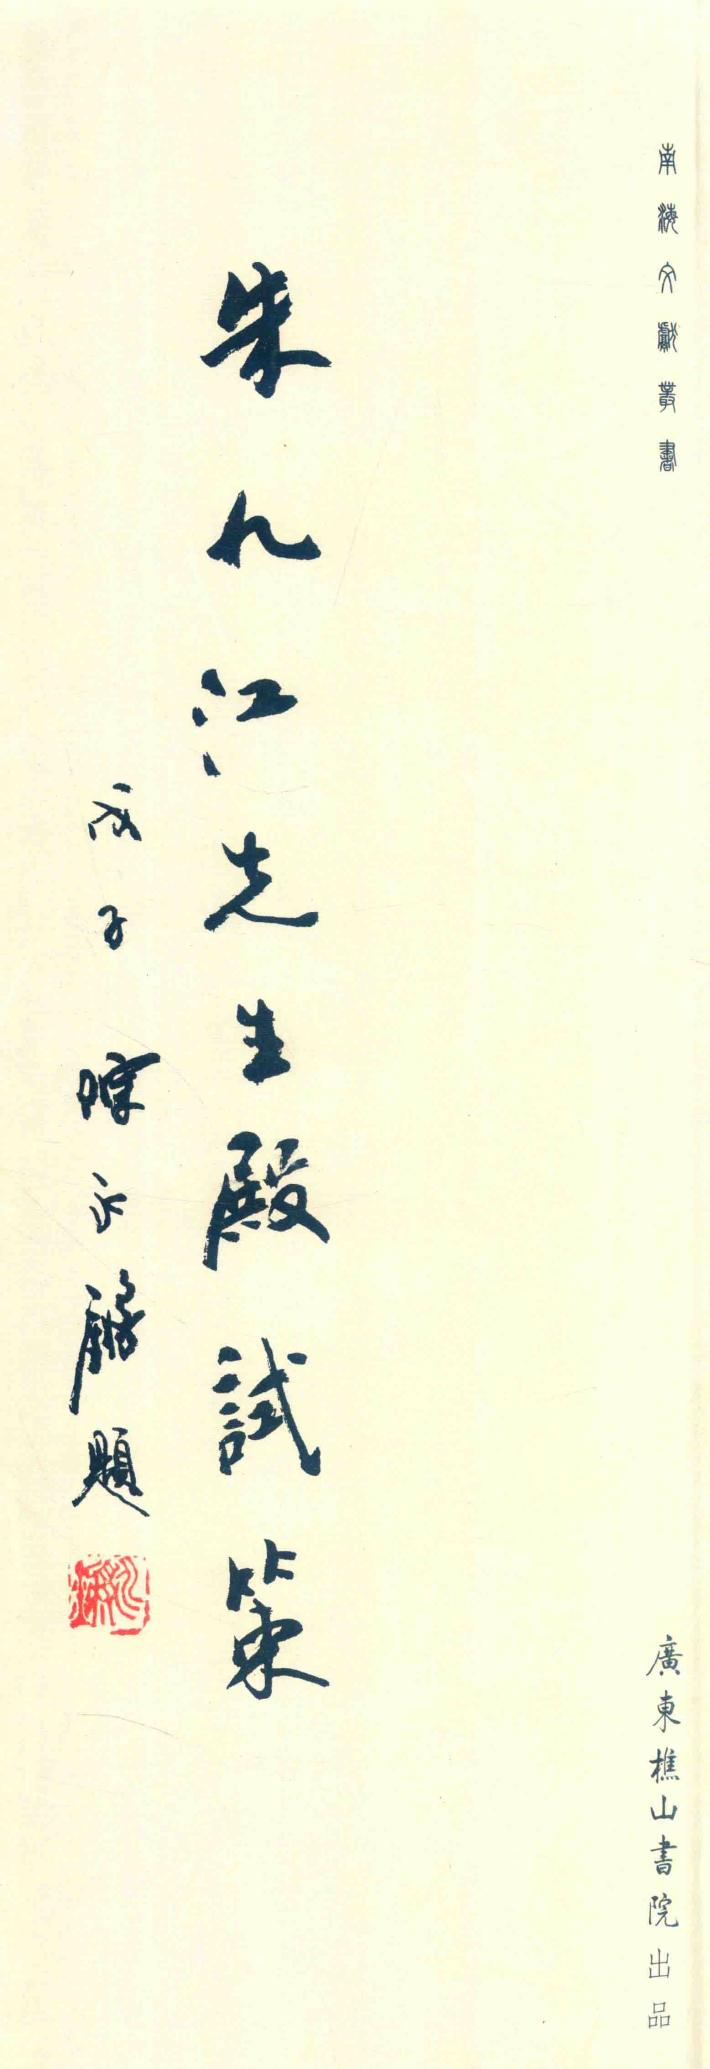 南海文獻叢書
廣東樵山書院出品
朱九江先生殿試策
子題